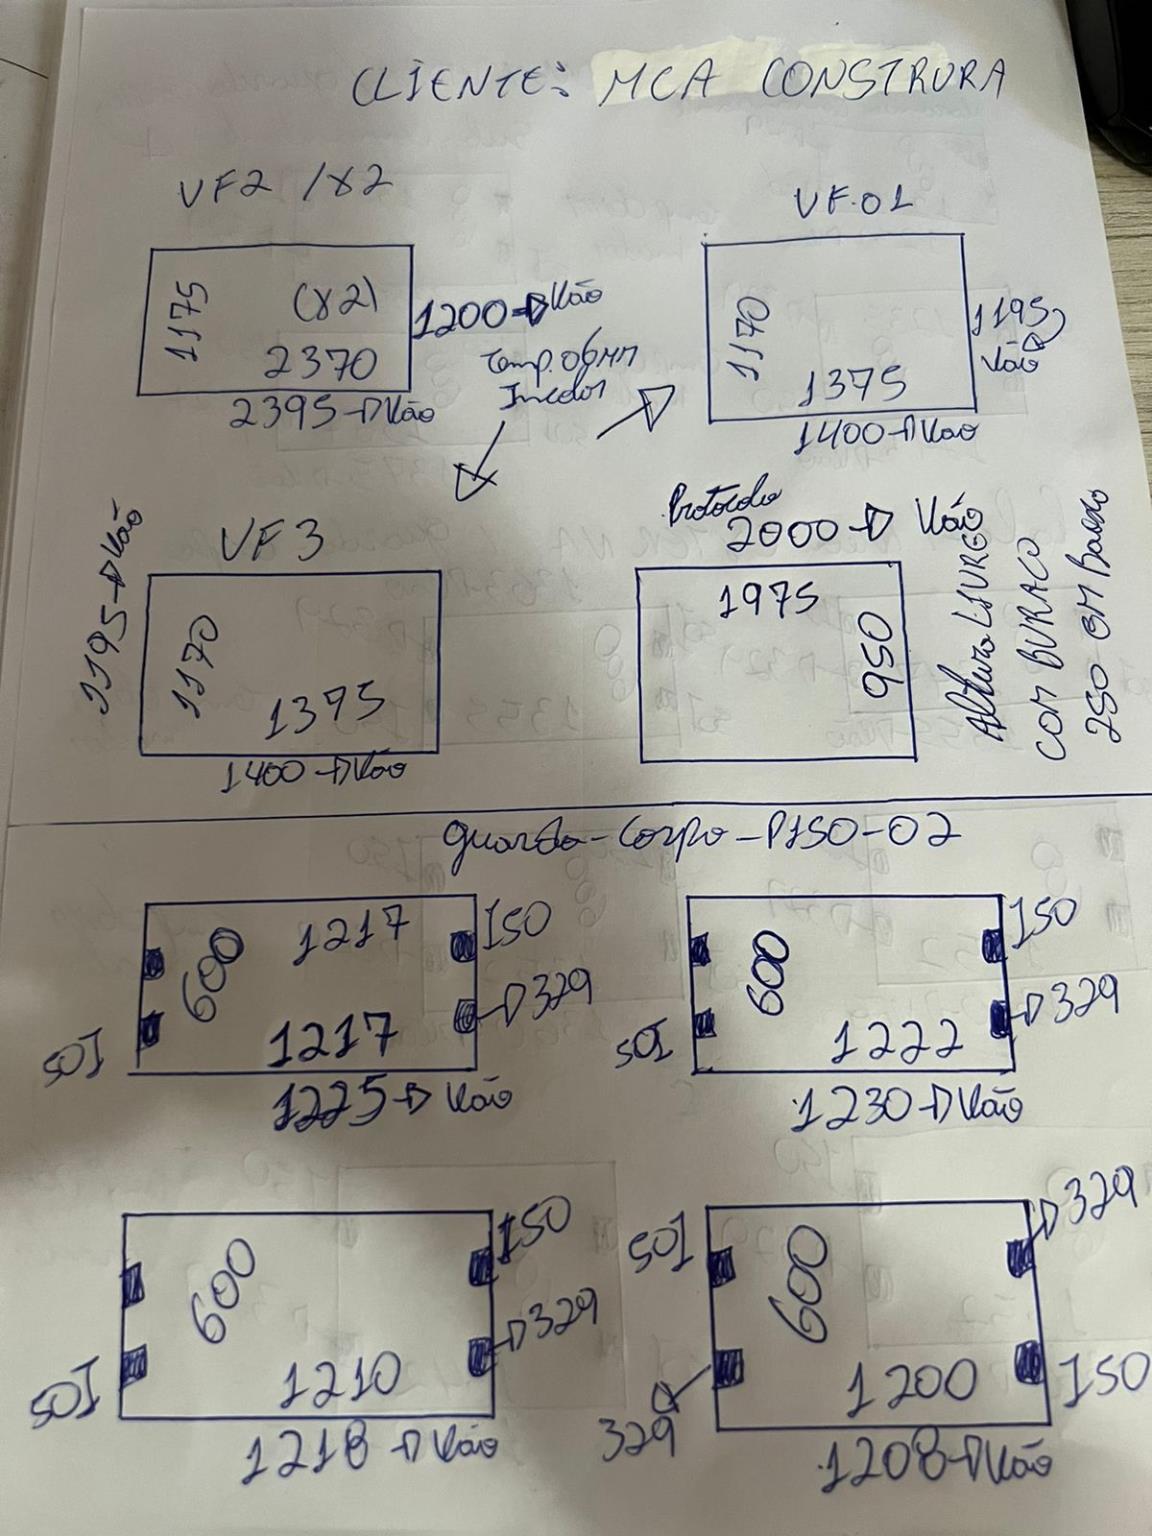 CLIENTE: MCA CONSTRURA
VF2 / X2
1175
(X2)
2370
1200 → Vão
2395 → Vão
Temp. 06MM
Incolor
VF.01
1170
1375
1195
Vão
1400 → Vão
VF3
1195 → Vão
1170
1395
1400 → Vão
Protocolo
2000 → Vão
1975
950
Altura LIVRE
COM BURACO
250 EM Baixo
guarda-Corpo-PISO-02
600
1217
150
329
1217
150
1225 → Vão
600
150
329
150
1222
1230 → Vão
600
150
329
150
1210
1218 → Vão
150
600
329
1200
150
329
1208 → Vão